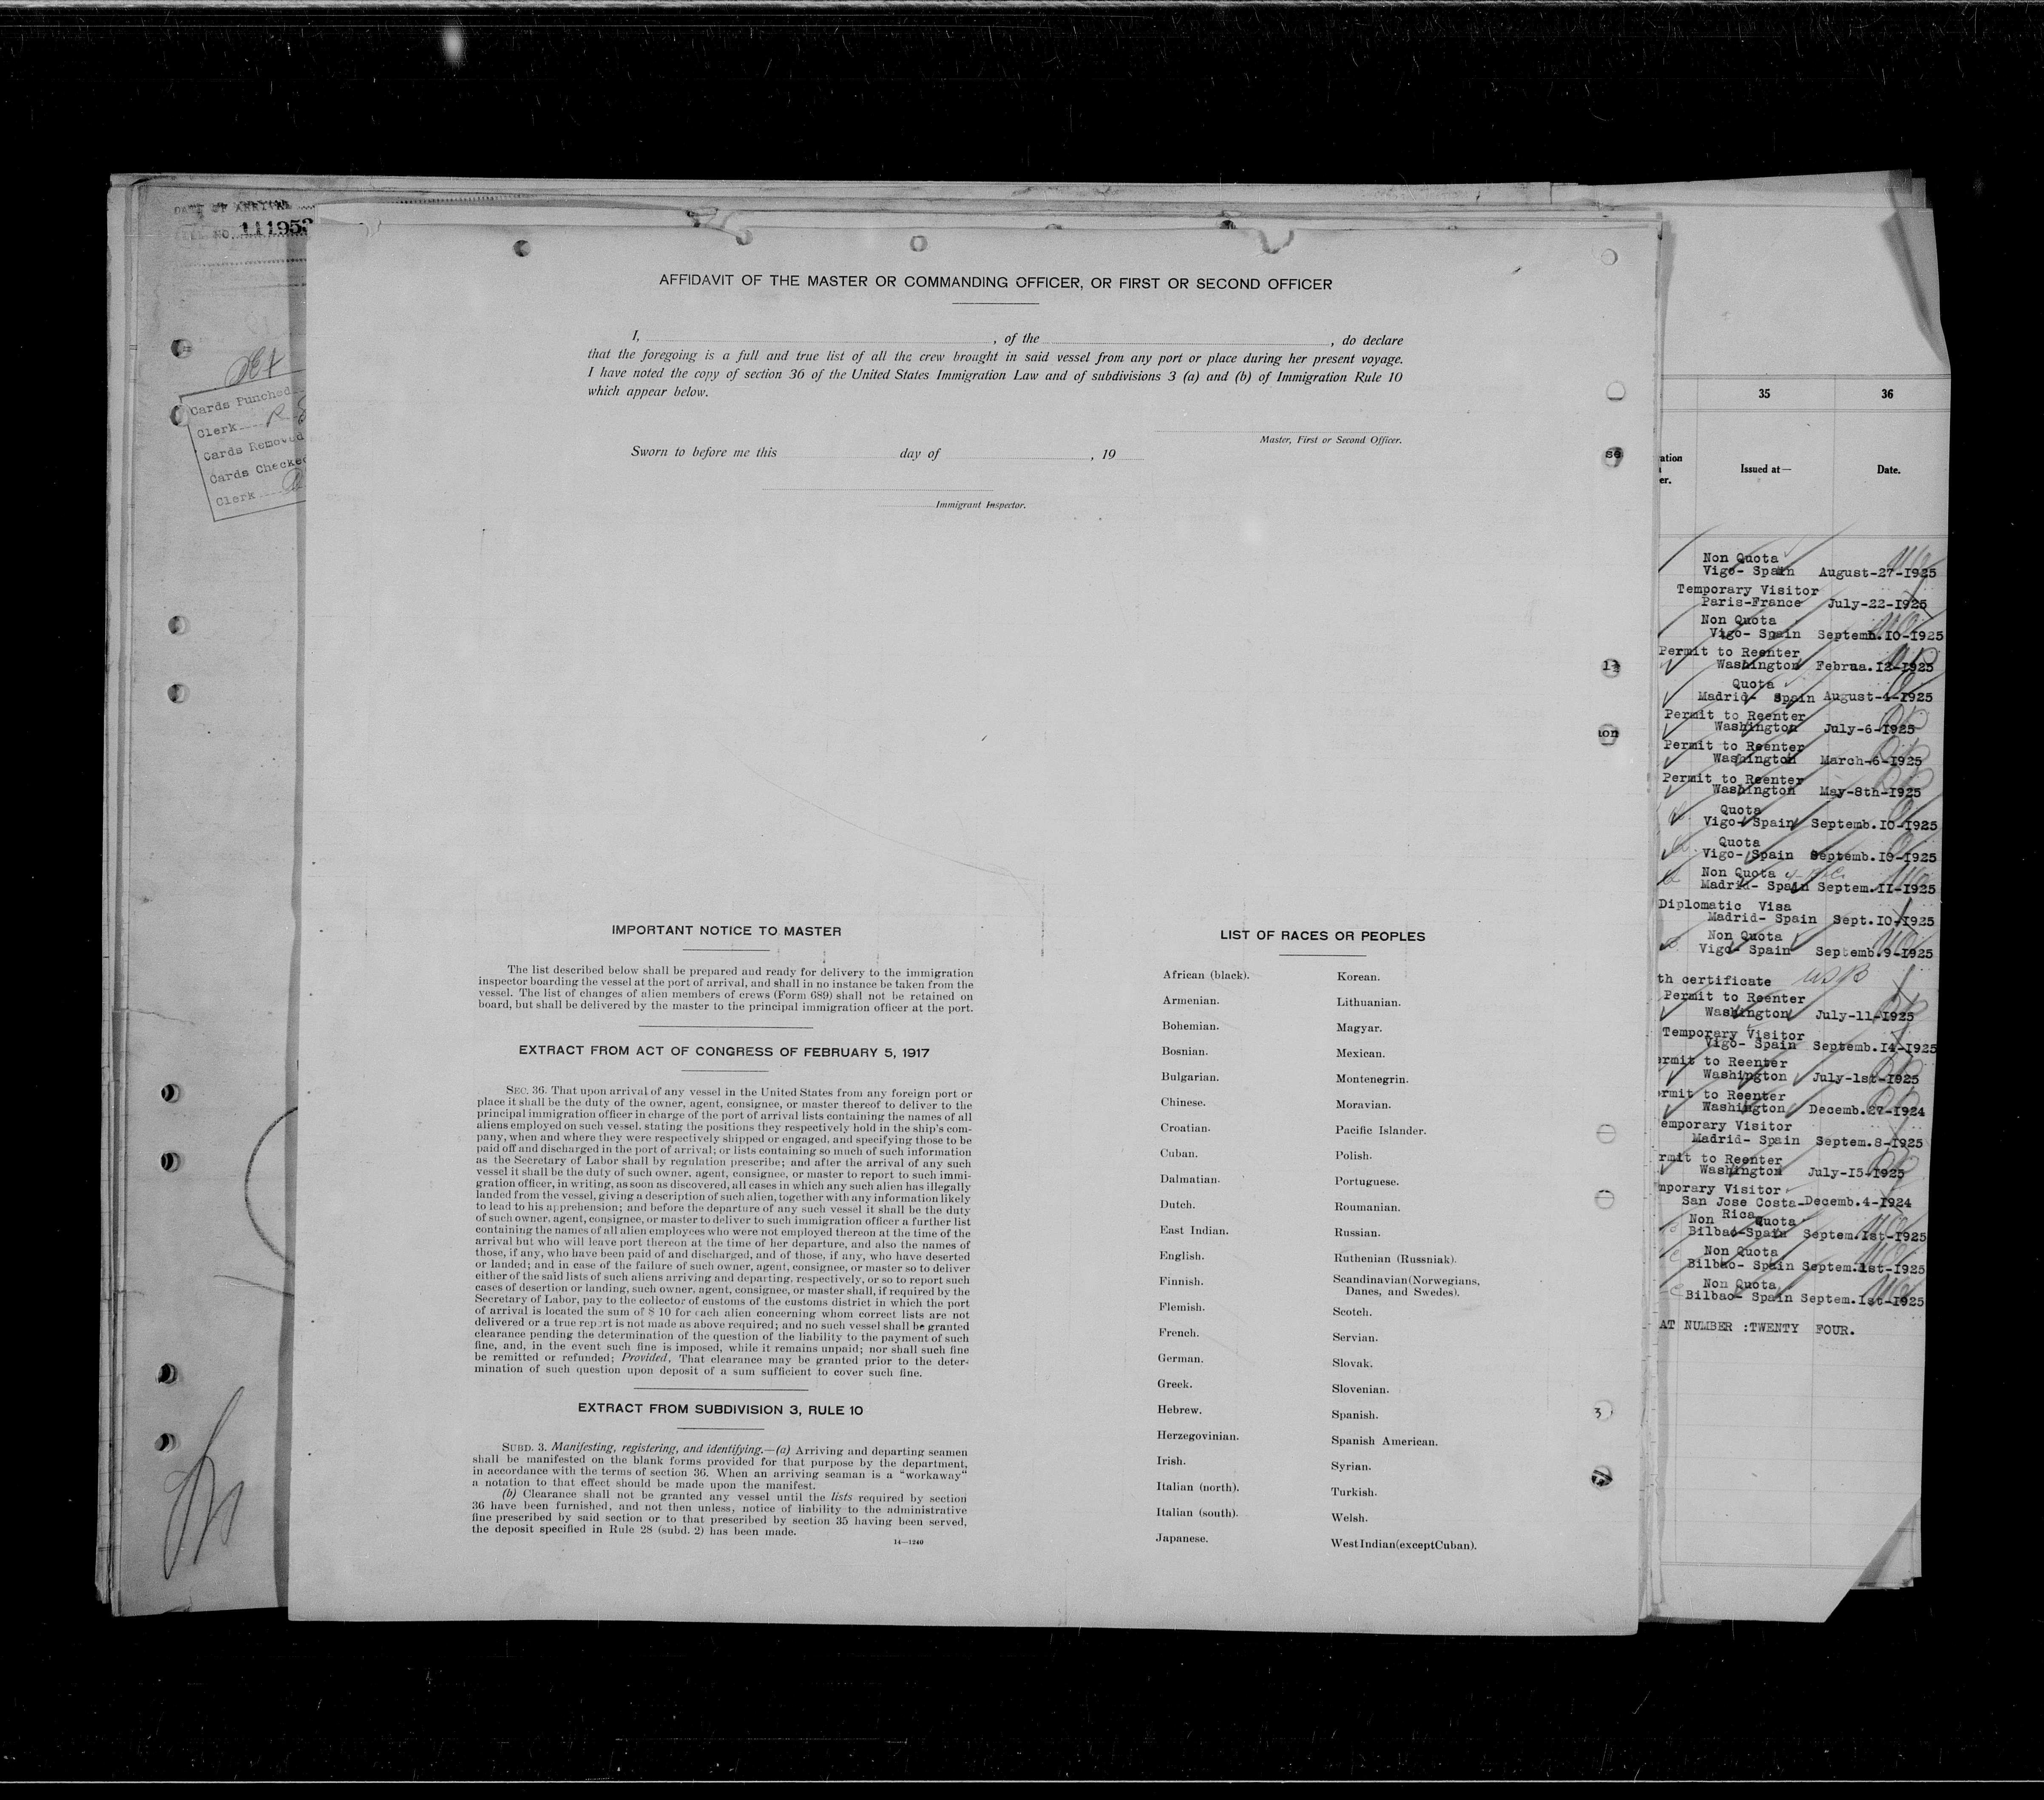 DATE OF ARRIVAL
NO. 111953
Cards Punched
Clerk
Cards Removed
Cards Checked
Clerk
AFFIDAVIT OF THE MASTER OR COMMANDING OFFICER, OR FIRST OR SECOND OFFICER
I, , of the , do declare
that the foregoing is a full and true list of all the crew brought in said vessel from any port or place during her present voyage.
I have noted the copy of section 36 of the United States Immigration Law and of subdivisions 3 (a) and (b) of Immigration Rule 10
which appear below.
Master, First or Second Officer.
Sworn to before me this day of , 19
Immigrant Inspector.
IMPORTANT NOTICE TO MASTER
The list described below shall be prepared and ready for delivery to the immigration
inspector boarding the vessel at the port of arrival, and shall in no instance be taken from the
vessel. The list of changes of alien members of crews (Form 689) shall not be retained on
board, but shall be delivered by the master to the principal immigration officer at the port.
EXTRACT FROM ACT OF CONGRESS OF FEBRUARY 5, 1917
SEC. 36. That upon arrival of any vessel in the United States from any foreign port or
place it shall be the duty of the owner, agent, consignee, or master thereof to deliver to the
principal immigration officer in charge of the port of arrival lists containing the names of all
aliens employed on such vessel, stating the positions they respectively hold in the ship's com-
pany, when and where they were respectively shipped or engaged, and specifying those to be
paid off and discharged in the port of arrival; or lists containing so much of such information
as the Secretary of Labor shall by regulation prescribe; and after the arrival of any such
vessel it shall be the duty of such owner, agent, consignee, or master to report to such immi-
gration officer, in writing, as soon as discovered, all cases in which any such alien has illegally
landed from the vessel, giving a description of such alien, together with any information likely
to lead to his apprehension; and before the departure of any such vessel it shall be the duty
of such owner, agent, consignee, or master to deliver to such immigration officer a further list
containing the names of all alien employees who were not employed thereon at the time of the
arrival but who will leave port thereon at the time of her departure, and also the names of
those, if any, who have been paid of and discharged, and of those, if any, who have deserted
or landed; and in case of the failure of such owner, agent, consignee, or master so to deliver
either of the said lists of such aliens arriving and departing, respectively, or so to report such
cases of desertion or landing, such owner, agent, consignee, or master shall, if required by the
Secretary of Labor, pay to the collector of customs of the customs district in which the port
of arrival is located the sum of $ 10 for each alien concerning whom correct lists are not
delivered or a true report is not made as above required; and no such vessel shall be granted
clearance pending the determination of the question of the liability to the payment of such
fine, and, in the event such fine is imposed, while it remains unpaid; nor shall such fine
be remitted or refunded; Provided, That clearance may be granted prior to the deter-
mination of such question upon deposit of a sum sufficient to cover such fine.
EXTRACT FROM SUBDIVISION 3, RULE 10
SUBD. 3. Manifesting, registering, and identifying.—(a) Arriving and departing seamen
shall be manifested on the blank forms provided for that purpose by the department,
in accordance with the terms of section 36. When an arriving seaman is a "workaway"
a notation to that effect should be made upon the manifest.
(b) Clearance shall not be granted any vessel until the lists required by section
36 have been furnished, and not then unless, notice of liability to the administrative
fine prescribed by said section or to that prescribed by section 35 having been served,
the deposit specified in Rule 28 (subd. 2) has been made.
14—1240
LIST OF RACES OR PEOPLES
African (black).
Armenian.
Bohemian.
Bosnian.
Bulgarian.
Chinese.
Croatian.
Cuban.
Dalmatian.
Dutch.
East Indian.
English.
Finnish.
Flemish.
French.
German.
Greek.
Hebrew.
Herzegovinian.
Irish.
Italian (north).
Italian (south).
Japanese.
Korean.
Lithuanian.
Magyar.
Mexican.
Montenegrin.
Moravian.
Pacific Islander.
Polish.
Portuguese.
Roumanian.
Russian.
Ruthenian (Russniak).
Scandinavian (Norwegians,
Danes, and Swedes).
Scotch.
Servian.
Slovak.
Slovenian.
Spanish.
Spanish American.
Syrian.
Turkish.
Welsh.
West Indian (except Cuban).
35 36
Issued at— Date.
Non Quota
Vigo- Spain August-27-1925
Temporary Visitor
Paris-France July-22-1925
Non Quota
Vigo- Spain Septemb.10-1925
Permit to Reenter
Washington Februa.12-1925
Quota
Madrid- Spain August-4-1925
Permit to Reenter
Washington July-6-1925
Permit to Reenter
Washington March-6-1925
Permit to Reenter
Washington May-8th-1925
Quota
Vigo- Spain Septemb.10-1925
Quota
Vigo- Spain Septemb.10-1925
Non Quota
Madrid- Spain Septem.11-1925
Diplomatic Visa
Madrid- Spain Sept.10-1925
Non Quota
Vigo- Spain Septemb.9-1925
th certificate USB
Permit to Reenter
Washington July-11-1925
Temporary Visitor
Vigo- Spain Septemb.14-1925
ermit to Reenter
Washington July-1st-1925
ermit to Reenter
Washington Decemb.27-1924
emporary Visitor
Madrid- Spain Septem.8-1925
rmit to Reenter
Washington July-15-1925
mporary Visitor
San Jose Costa- Decemb.4-1924
Rica
Non Quota
Bilbao-Spain Septem.1st-1925
Non Quota
Bilbao- Spain Septem.1st-1925
Non Quota
Bilbao- Spain Septem.1st-1925
AT NUMBER :TWENTY FOUR.